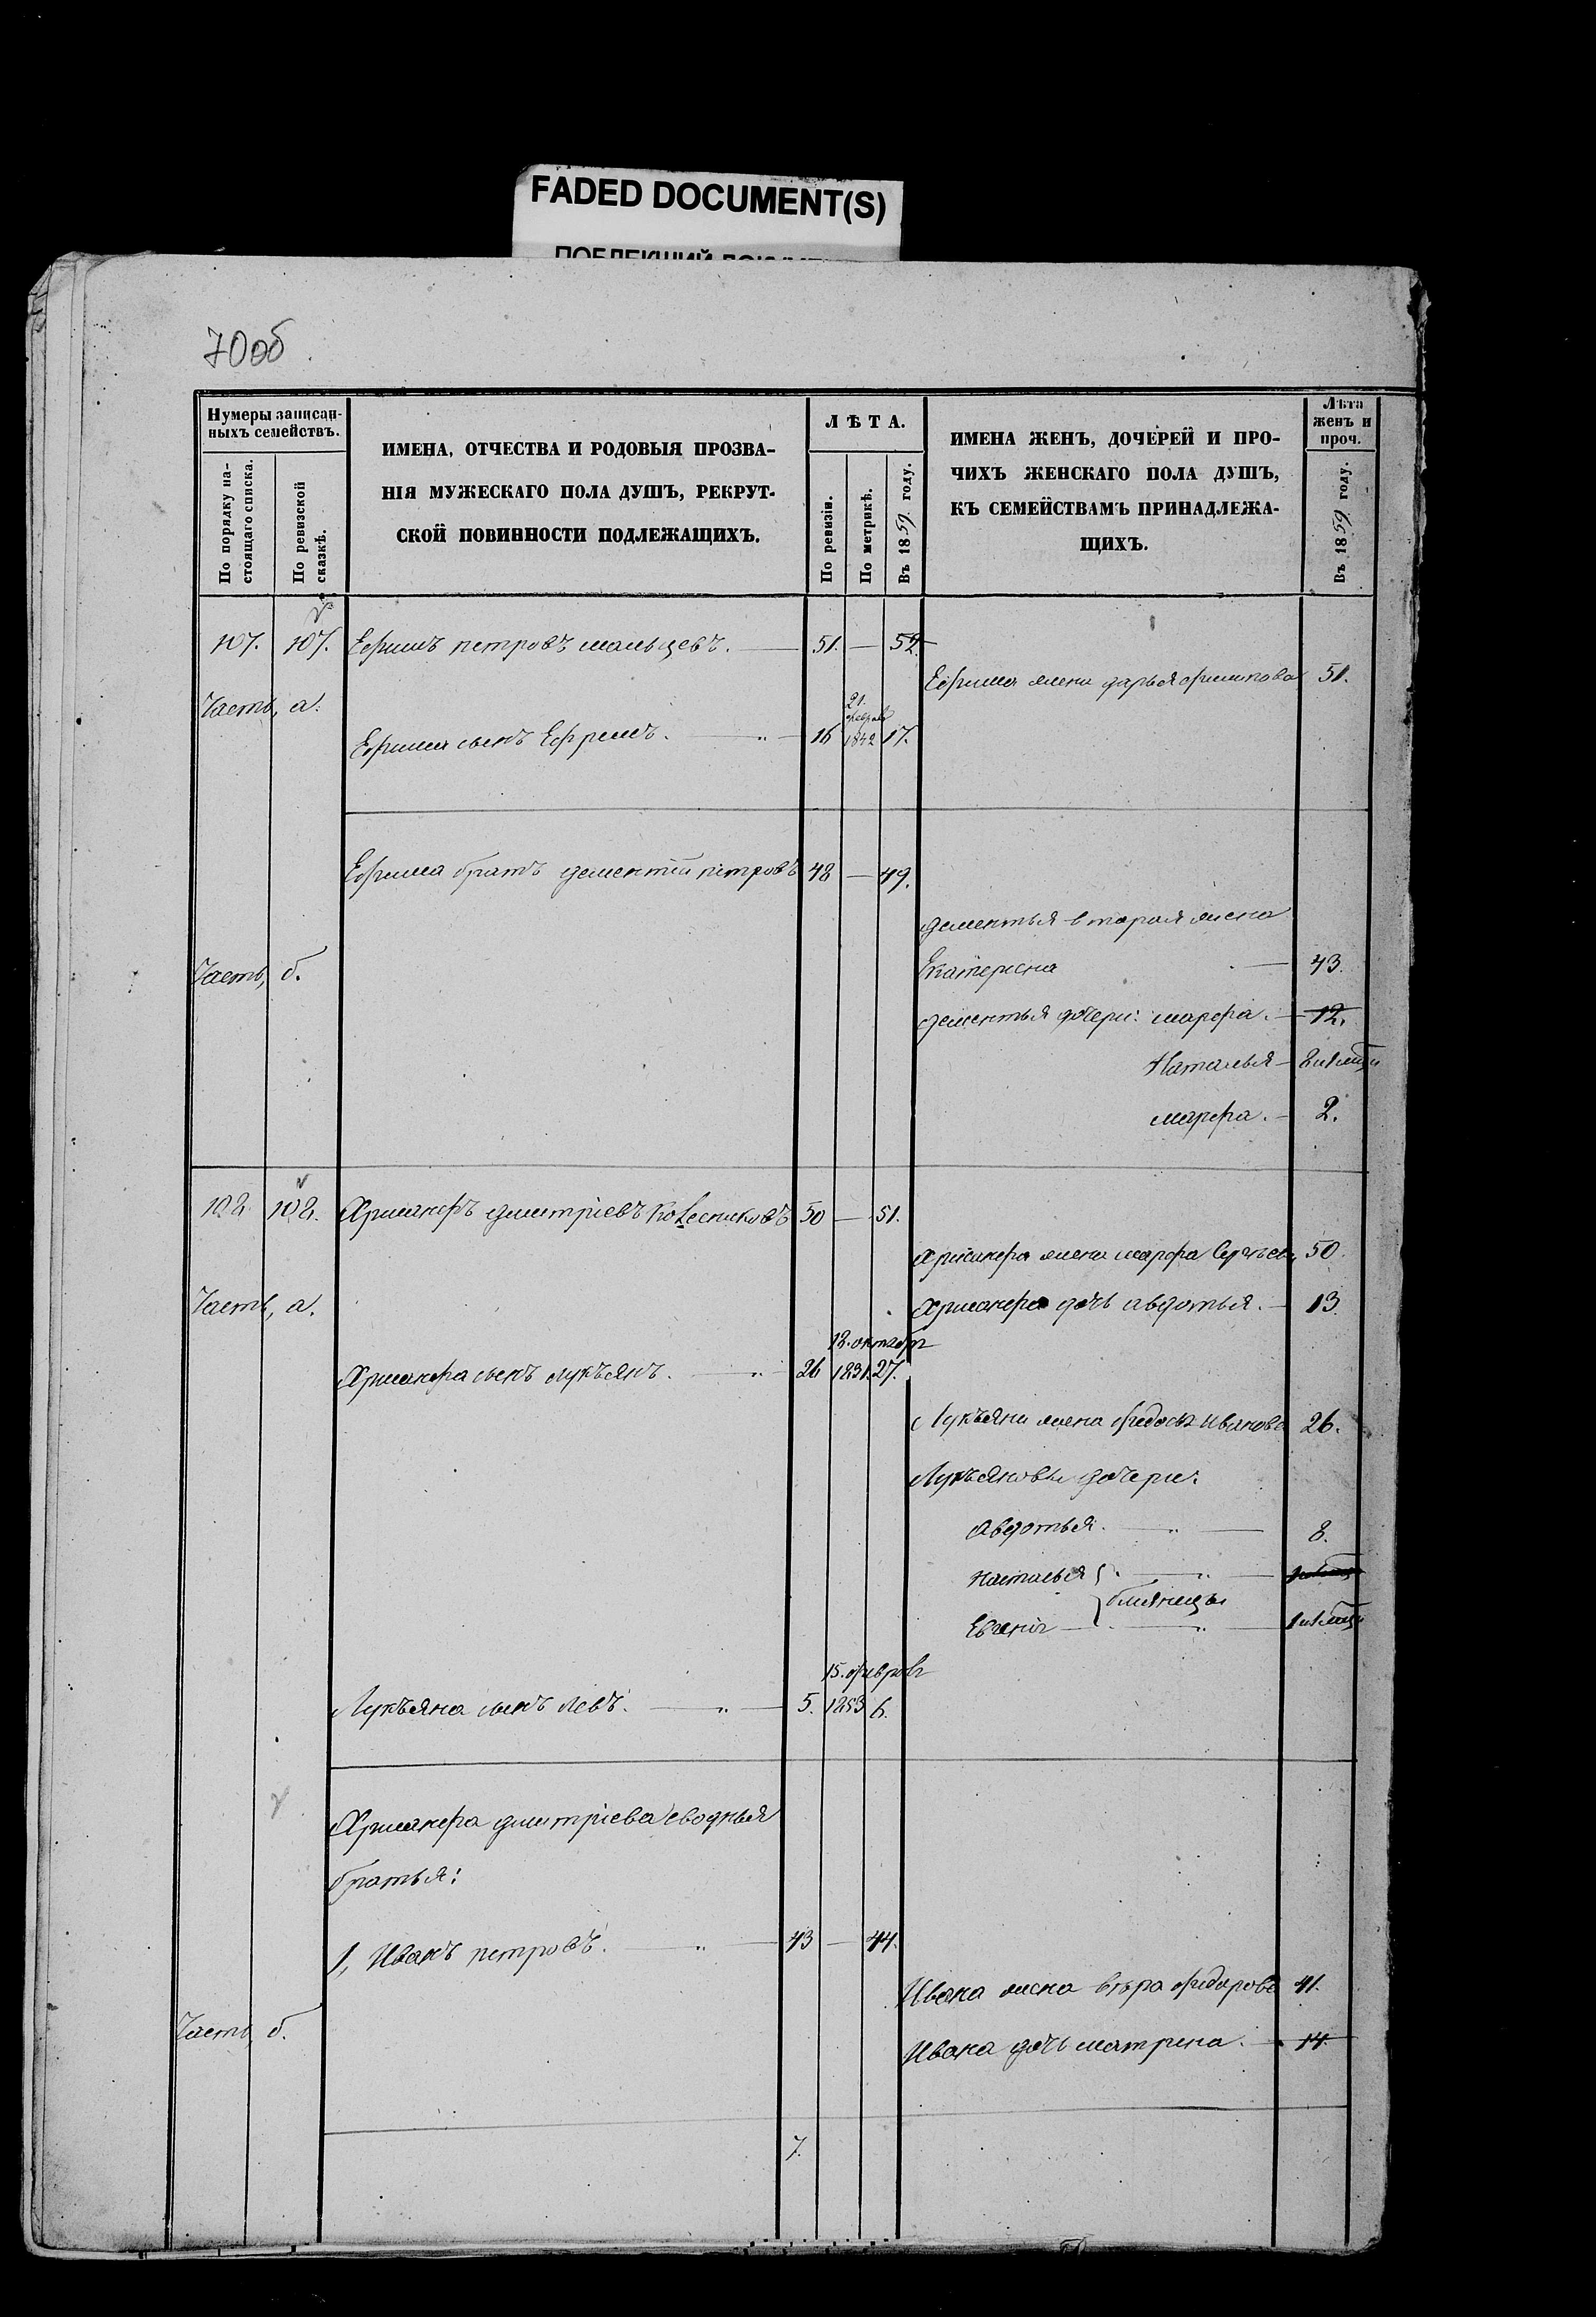 FADED DOCUMENT(S)
70об
Нумеры записан-
ныхъ семействъ.
По порядку на-
стоящаго списка.
По ревизской
сказкѣ.
ИМЕНА, ОТЧЕСТВА И РОДОВЫЯ ПРОЗВА-
НІЯ МУЖЕСКАГО ПОЛА ДУШЪ, РЕКРУТ-
СКОЙ ПОВИННОСТИ ПОДЛЕЖАЩИХЪ.
ЛѢТА.
По ревизіи.
По метрикѣ.
Въ 1859 году.
ИМЕНА ЖЕНЪ, ДОЧЕРЕЙ И ПРО-
ЧИХЪ ЖЕНСКАГО ПОЛА ДУШЪ,
КЪ СЕМЕЙСТВАМЪ ПРИНАДЛЕЖА-
ЩИХЪ.
Лѣта
женъ и
проч.
Въ 1859 году.
107. 107. Ефимъ петровъ мальцевъ. 51. — 52.
Ефима жена дарья 51.
Часть, а.
21.
февраля
Ефима сынъ Ефремъ. 16 1842 17.
Ефима братъ дементій петровъ 48 — 49.
дементья вторая жена
Часть, б. Екатерена 43.
дементья дочери: марфа. 12.
Наталья 8
марфа. 2.
108. 108. Ксенофонтъ дмитріевъ Колесниковъ 50 — 51.
жена марфа 50.
Часть, а. дочь авдотья. 13.
18. октября
сынъ лукъянъ. 26 1831. 27.
Лукъяна жена федосья Иванова 26.
Лукъяновы дочери:
Авдотья. 8.
Наталья
близнецы
Евгенія 1
15. февраля
Лукъяна сынъ левъ. 5. 1853 6.
дмитріева сводныя
братья:
1, Иванъ петровъ. 43 — 44.
Ивана жена вѣра федорова 41.
Часть, б. Ивана дочь матрена. 14.
7.